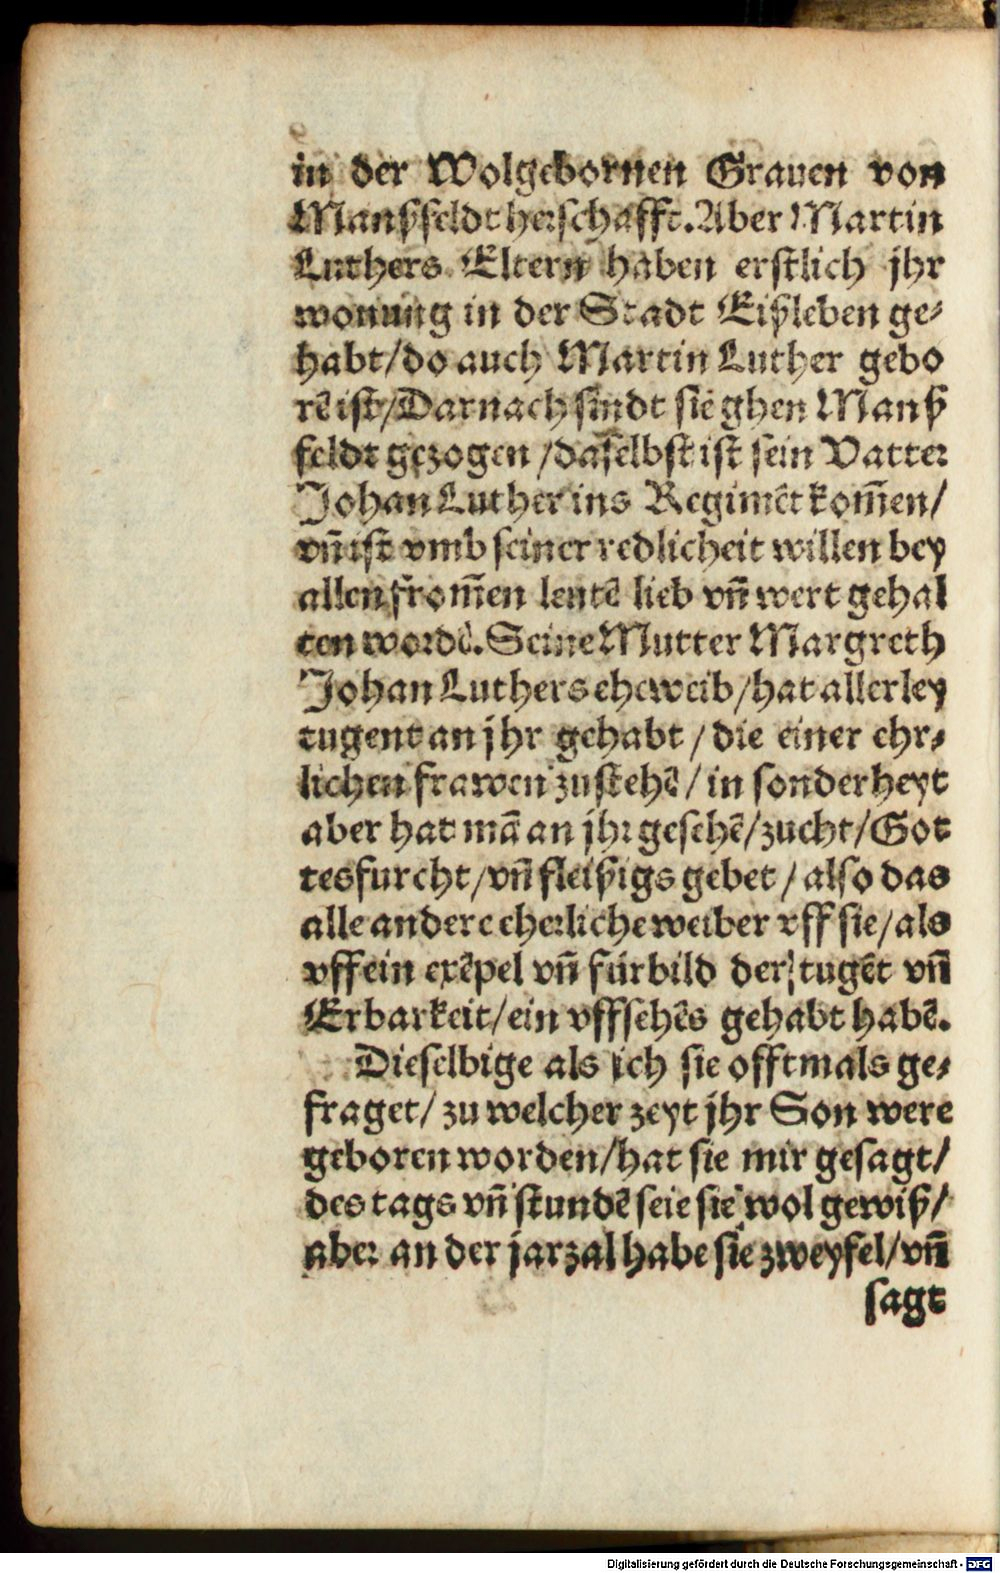 in der Wolgebornen Grauen von
Manßfeldt herschafft. Aber Martin
Luthers Eltern haben erstlich jhr
wonung in der Stadt Eißleben ge⸗
habt/do auch Martin Luther gebo
rē ist/Darnach sindt sie ghen Manß
feldt gezogen /daselbst ist sein Vatter
Johan Luther ins Regimēt kom̄en/
vn̄ ist vmb seiner redlicheit willen bey
allen from̄en leutē lieb vn̄ wert gehal
ten wordē. Seine Mutter Margreth
Johan Luthers eheweib/hat allerley
tugent an jhr gehabt / die einer ehr⸗
lichen frawen zustehē / in sonderheyt
aber hat mā an jhr gesehē/zucht/Got
tesfurcht/vn̄ fleißigs gebet / also das
alle andere eherliche weiber vff sie/als
vff ein exēpel vn̄ fürbild der tugēt vn̄
Erbarkeit/ein vffsehēs gehabt habē.
Dieselbige als ich sie offtmals ge⸗
fraget/ zu welcher zeyt jhr Son were
geboren worden/hat sie mir gesagt/
des tags vn̄ stundē seie sie wol gewiß/
aber an der jarzal habe sie zweyfel/vn̄
sagt
Digitalisierung gefördert durch die Deutsche Forschungsgemeinschaft - DFG